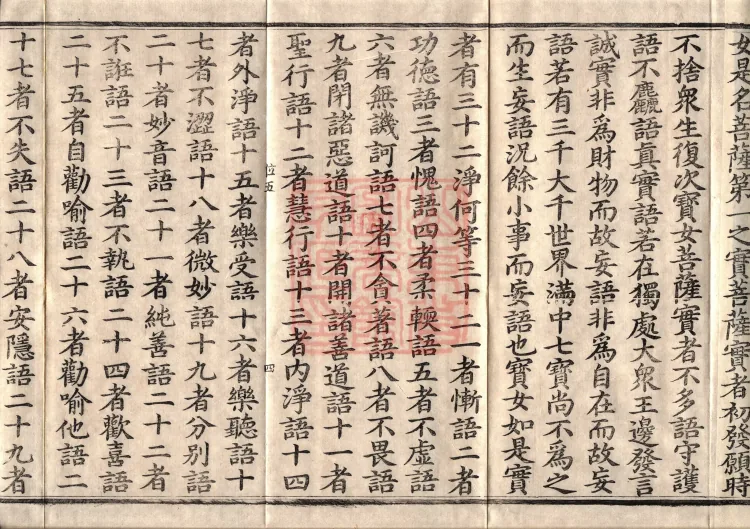 女是名菩薩第一之實菩薩實者初發願時
不捨衆生復次寶女菩薩實者不多語守護
語不麤語眞實語若在獨處大衆王邊發言
誠實非爲財物而故妄語非爲自在而故妄
語若有三千大千世界滿中七寶尚不爲之
而生妄語況餘小事而妄語也寶女如是實
者有三十二淨何等三十二一者慚語二者
功德語三者愧語四者柔輭語五者不虛語
六者無譏訶語七者不貪著語八者不畏語
九者閉諸惡道語十者開諸善道語十一者
聖行語十二者慧行語十三者內淨語十四
位五
四
者外淨語十五者樂受語十六者樂聽語十
七者不澀語十八者微妙語十九者分別語
二十者妙音語二十一者純善語二十二者
不誑語二十三者不執語二十四者歡喜語
二十五者自勸喻語二十六者勸喻他語二
十七者不失語二十八者安隱語二十九者